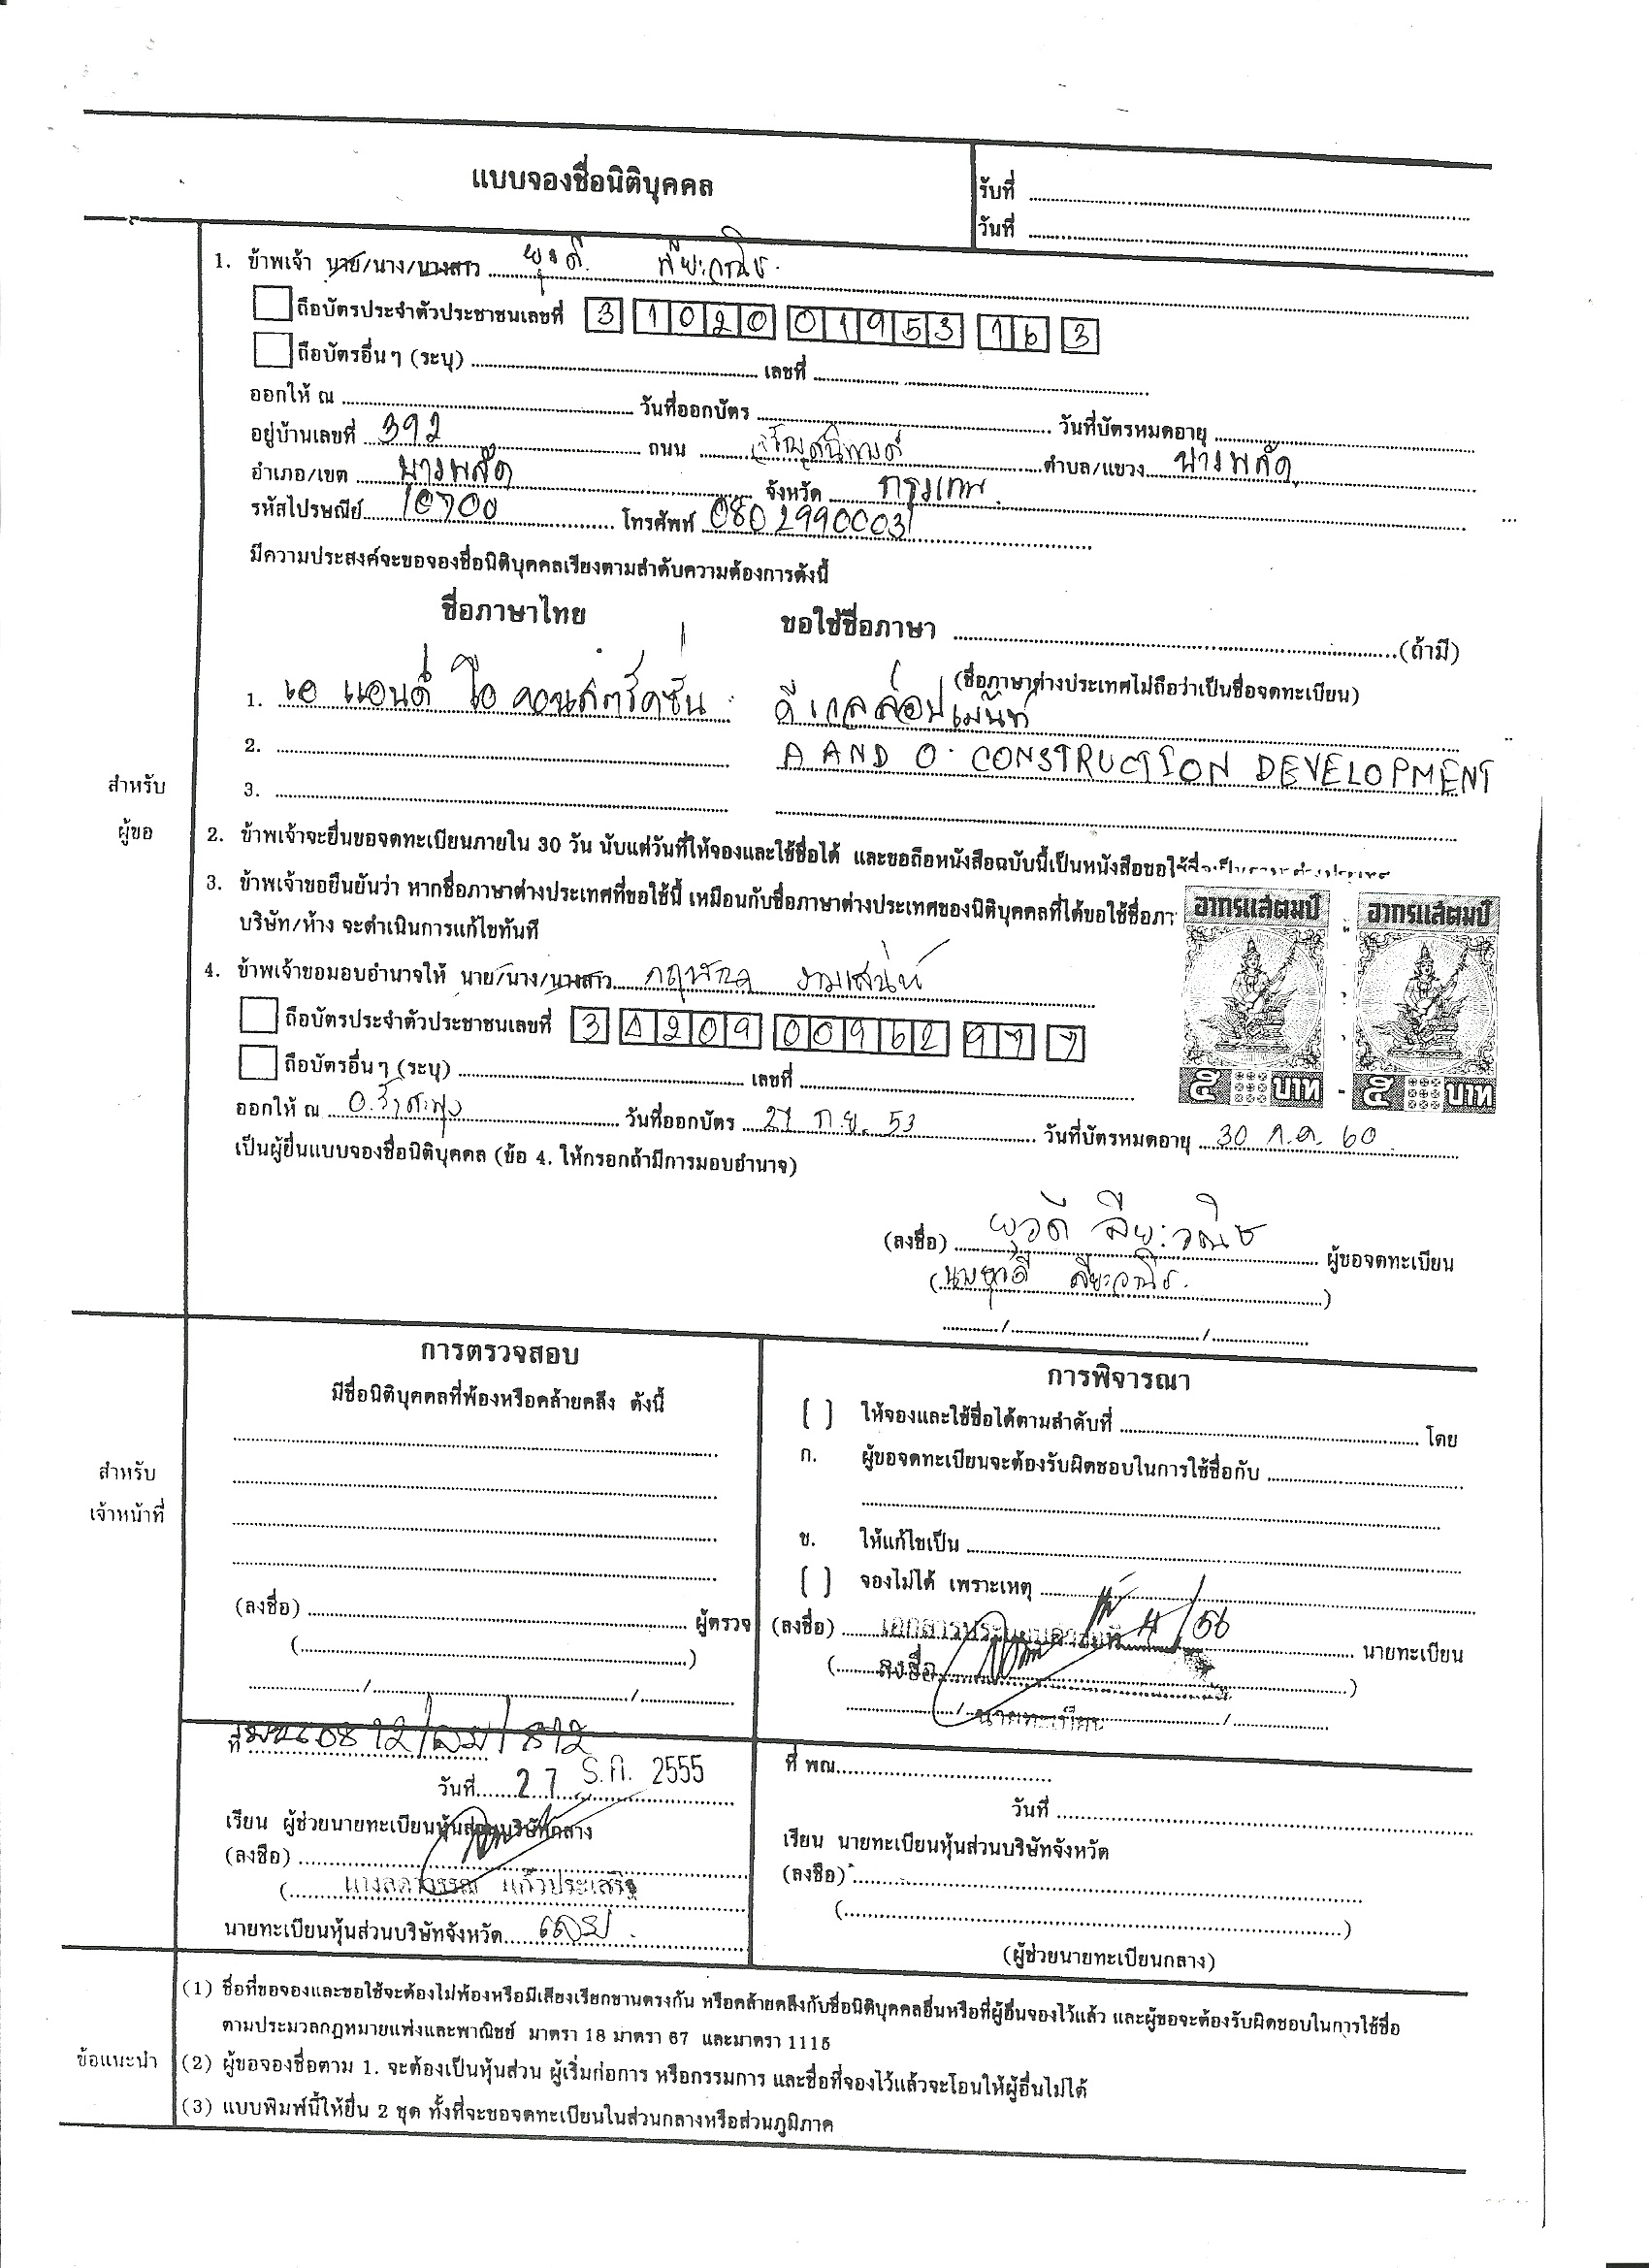 แบบจองชื่อนิติบุคคล
รับที่
วันที่
1. ข้าพเจ้า นาย/นาง/นางสาว ยุวดี ลียะวณิช
ถือบัตรประจำตัวประชาชนเลขที่ 3 1020 01953 16 3
ถือบัตรอื่นๆ (ระบุ) เลขที่
ออกให้ ณ วันที่ออกบัตร วันที่บัตรหมดอายุ
อยู่บ้านเลขที่ 392 ถนน จรัญสนิทวงศ์ ตำบล/แขวง บางพลัด
อำเภอ/เขต บางพลัด จังหวัด กรุงเทพ
รหัสไปรษณีย์ 10700 โทรศัพท์ 0802990003
มีความประสงค์จะขอจองชื่อนิติบุคคลเรียงตามลำดับความต้องการดังนี้
ชื่อภาษาไทย ขอใช้ชื่อภาษา (ถ้ามี)
(ชื่อภาษาต่างประเทศไม่ถือว่าเป็นชื่อจดทะเบียน)
1. เอ แอนด์ โอ คอนสตรัคชั่น ดีเวลล่อปเม้นท์
2. A AND O CONSTRUCTION DEVELOPMENT
3.
สำหรับ
ผู้ขอ
2. ข้าพเจ้าจะยื่นขอจดทะเบียนภายใน 30 วัน นับแต่วันที่ให้จองและใช้ชื่อได้ และขอถือหนังสือฉบับนี้เป็นหนังสือขอใช้ชื่อเป็นภาษาต่างประเทศ
3. ข้าพเจ้าขอยืนยันว่า หากชื่อภาษาต่างประเทศที่ขอใช้นี้ เหมือนกับชื่อภาษาต่างประเทศของนิติบุคคลที่ได้ขอใช้ชื่อภา
บริษัท/ห้าง จะดำเนินการแก้ไขทันที
อากรแสตมป์ อากรแสตมป์
4. ข้าพเจ้าขอมอบอำนาจให้ นาย/นาง/นางสาว งามเสน่ห์
ถือบัตรประจำตัวประชาชนเลขที่ 3 4209 00962 97 7
ถือบัตรอื่นๆ (ระบุ) เลขที่
๕ บาท ๕ บาท
ออกให้ ณ อ.วังสะพุง วันที่ออกบัตร 27 ก.ย. 53 วันที่บัตรหมดอายุ 30 ก.ค. 60
เป็นผู้ยื่นแบบจองชื่อนิติบุคคล (ข้อ 4. ให้กรอกถ้ามีการมอบอำนาจ)
(ลงชื่อ) ยุวดี ลียะวณิช ผู้ขอจดทะเบียน
(นางยุวดี ลียะวณิช)
/ /
การตรวจสอบ
มีชื่อนิติบุคคลที่พ้องหรือคล้ายคลึง ดังนี้
สำหรับ
เจ้าหน้าที่
(ลงชื่อ) ผู้ตรวจ
( )
/ /
การพิจารณา
[ ] ให้จองและใช้ชื่อได้ตามลำดับที่ โดย
ก. ผู้ขอจดทะเบียนจะต้องรับผิดชอบในการใช้ชื่อกับ
ข. ให้แก้ไขเป็น
[ ] จองไม่ได้ เพราะเหตุ
(ลงชื่อ) 4/56 นายทะเบียน
( ลงชื่อ )
/ นายทะเบียน /
ที่
วันที่ 27 ธ.ค. 2555
เรียน ผู้ช่วยนายทะเบียนหุ้นส่วนบริษัทกลาง
(ลงชื่อ)
(นางลดาวรรณ แก้วประเสริฐ
นายทะเบียนหุ้นส่วนบริษัทจังหวัด เลย
ที่ พณ.
วันที่
เรียน นายทะเบียนหุ้นส่วนบริษัทจังหวัด
(ลงชื่อ)
( )
(ผู้ช่วยนายทะเบียนกลาง)
ข้อแนะนำ
(1) ชื่อที่ขอจองและขอใช้จะต้องไม่พ้องหรือมีเสียงเรียกขานตรงกัน หรือคล้ายคลึงกับชื่อนิติบุคคลอื่นหรือที่ผู้อื่นจองไว้แล้ว และผู้ขอจะต้องรับผิดชอบในการใช้ชื่อ
ตามประมวลกฎหมายแพ่งและพาณิชย์ มาตรา 18 มาตรา 67 และมาตรา 1115
(2) ผู้ขอจองชื่อตาม 1. จะต้องเป็นหุ้นส่วน ผู้เริ่มก่อการ หรือกรรมการ และชื่อที่จองไว้แล้วจะโอนให้ผู้อื่นไม่ได้
(3) แบบพิมพ์นี้ให้ยื่น 2 ชุด ทั้งที่จะขอจดทะเบียนในส่วนกลางหรือส่วนภูมิภาค